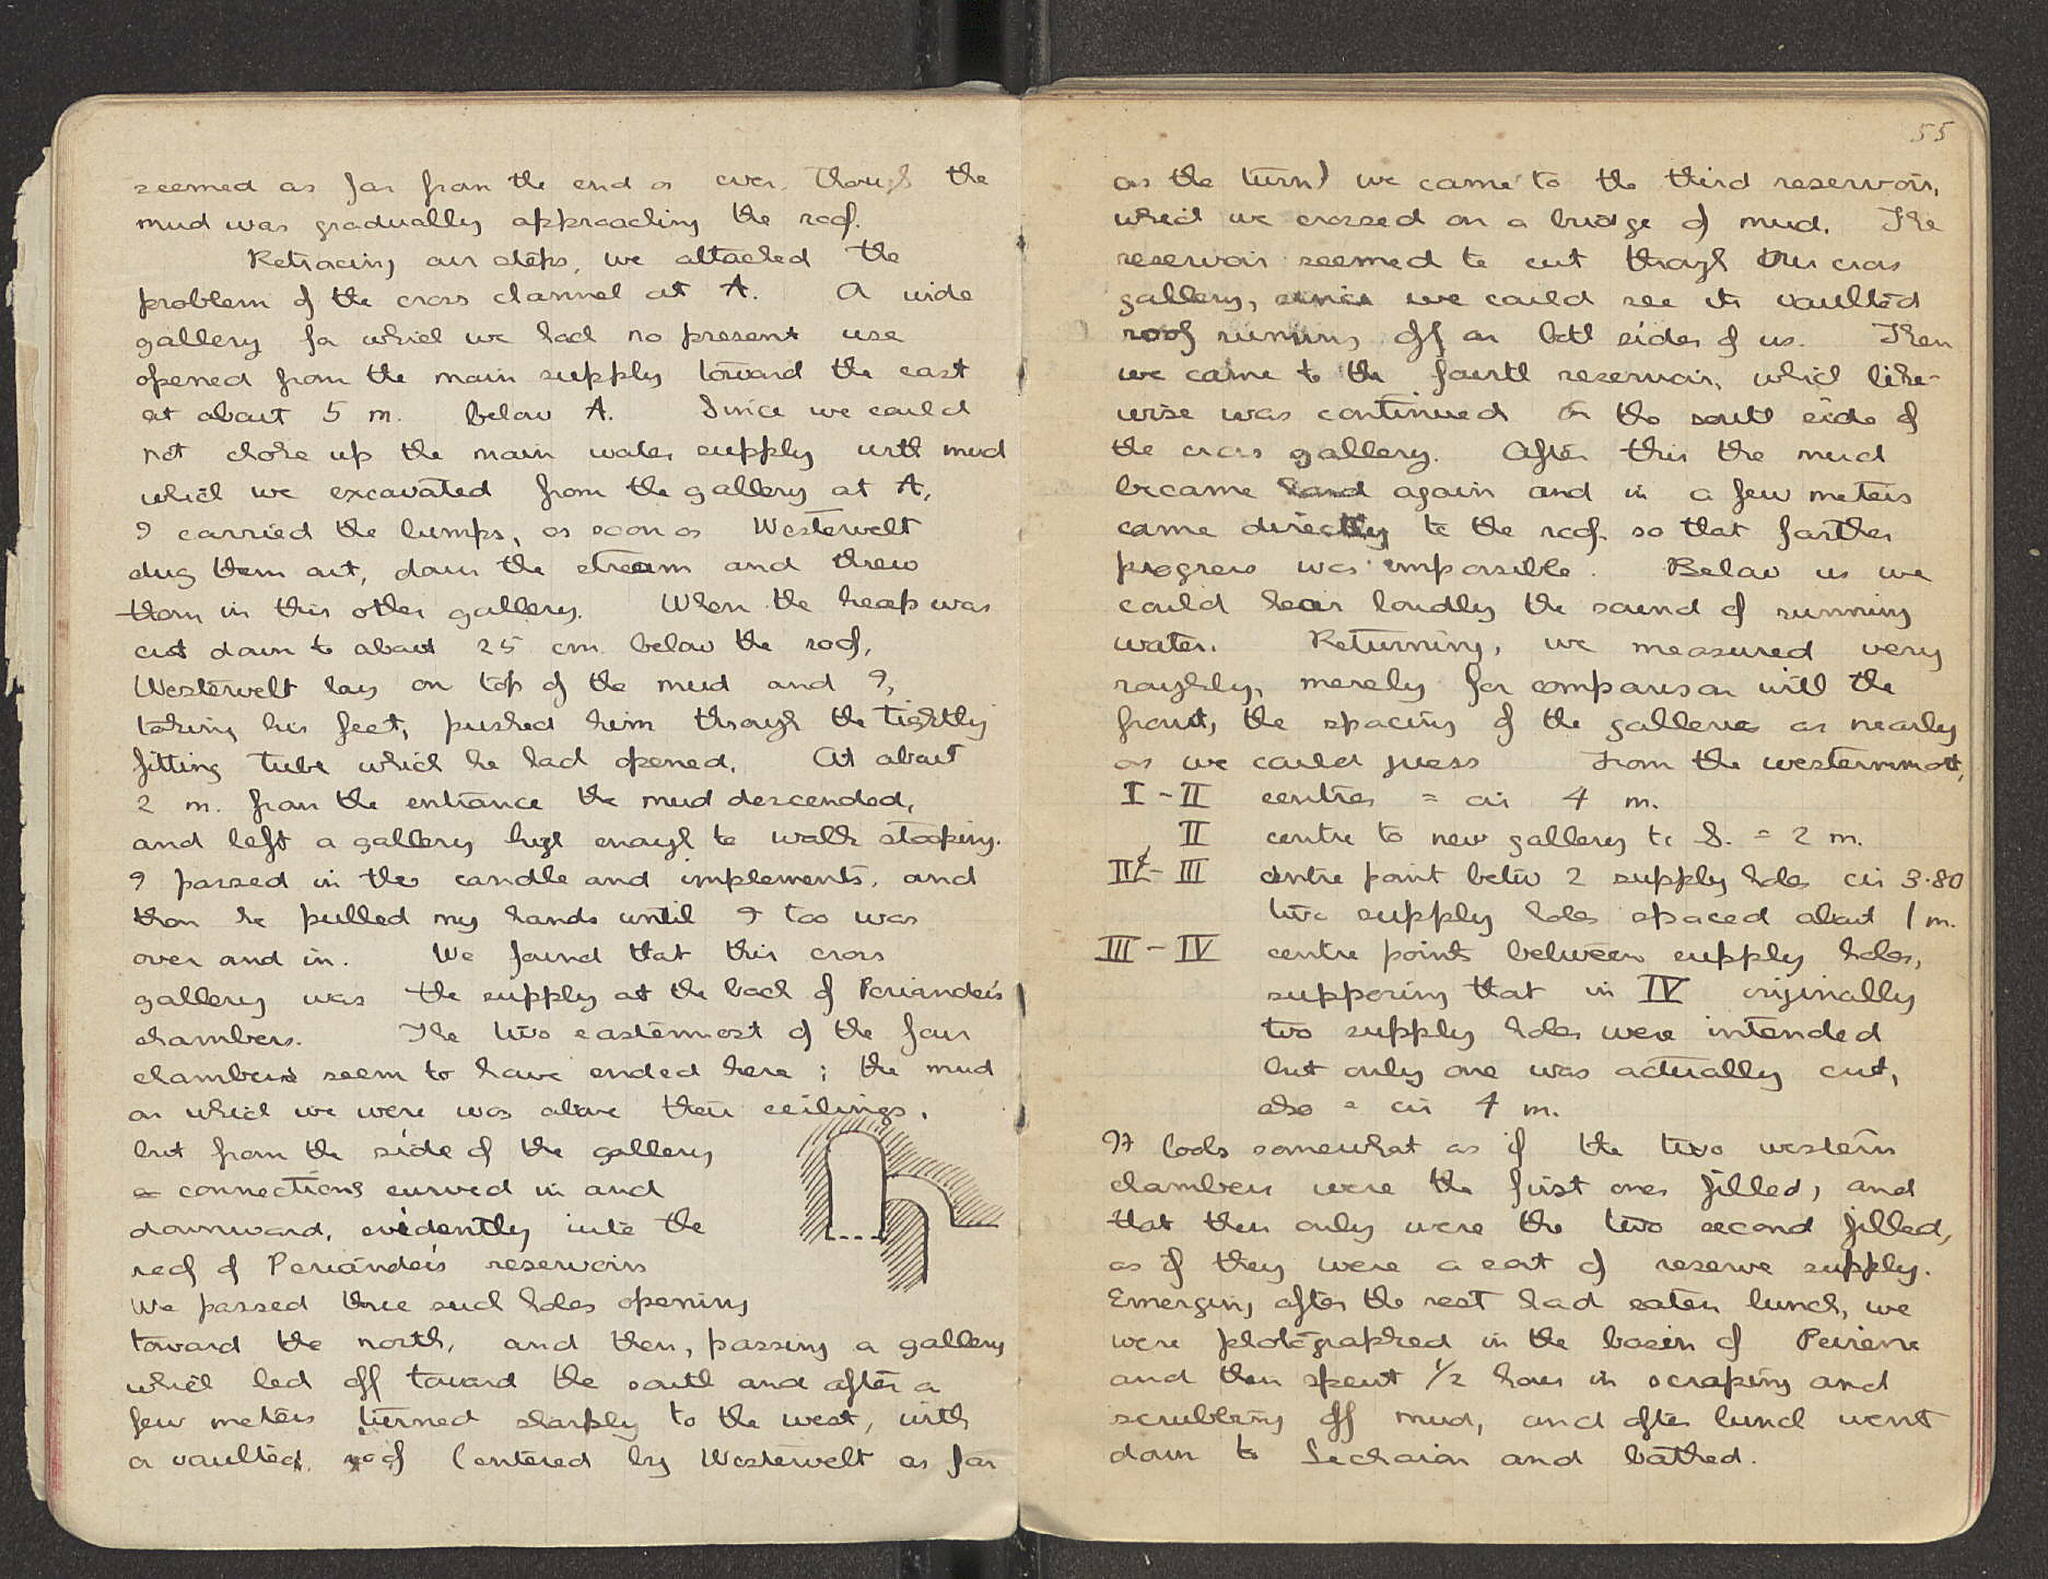 seemed as far from the end as ever, though the
mud was gradually approaching the roof.
Retracing our steps, we attacked the
problem of the cross channel at A. A wide
gallery for which we had no present use
opened from the main supply toward the east
at about 5 m. below A. Since we could
not choke up the main water supply with mud
which we excavated from the gallery at A,
I carried the lumps, as soon as Westervelt
dug them out, down the stream and threw
them in this other gallery. When the heap was
cut down to about 25 cm. below the roof,
Westervelt lay on top of the mud and I,
taking his feet, pushed him through the tightly
fitting tube which he had opened. At about
2 m. from the entrance the mud descended,
and left a gallery high enough to walk stooping.
I passed in the candle and implements, and
then he pulled my hands until I too was
over and in. We found that this cross
gallery was the supply at the back of Periander's
chambers. The two easternmost of the four
chambers seem to have ended here; the mud
on which we were was above their ceilings,
but from the side of the gallery
connections curved in and
downward, evidently into the
roof of Periander's reservoirs
We passed three such holes opening
toward the north, and then, passing a gallery
which led off toward the south and after a
few meters turned sharply to the west, with
a vaulted roof (entered by Westervelt as far
55
as the turn) we came to the third reservoir,
which we crossed on a bridge of mud. The
reservoir seemed to cut through our cross
gallery, since we could see its vaulted
roof running off on both sides of us. Then
we came to the fourth reservoir, which like-
wise was continued on the south side of
the cross gallery. After this the mud
became hard again and in a few meters
came directly to the roof so that farther
progress was impossible. Below us we
could hear loudly the sound of running
water. Returning, we measured very
roughly, merely for comparison with the
front, the spacing of the galleries as nearly
as we could guess From the westernmost,
I - II centres = cir 4 m.
II centre to new gallery to S. = 2 m.
II - III centre point betw 2 supply holes cir 3.80
two supply holes spaced about 1 m.
III - IV centre points between supply holes,
supposing that in IV originally
two supply holes were intended
but only one was actually cut,
also = cir 4 m.
It looks somewhat as if the two western
chambers were the first ones filled, and
that then only were the two second filled,
as if they were a sort of reserve supply.
Emerging after the rest had eaten lunch, we
were photographed in the basin of Peirene
and then spent 1/2 hour in scraping and
scrubbing off mud, and after lunch went
down to Lechaion and bathed.